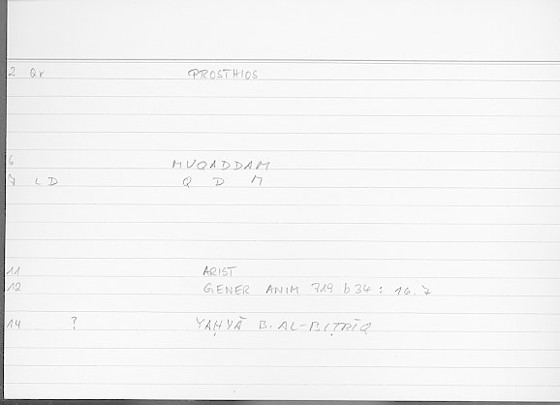 2 Qr PROSTHIOS
6 MUQADDAM
7 LD Q D M
11 ARIST
12 GENER ANIM 719 b34 : 16.7
14 ? YAḤYĀ B. AL-BIṬRĪQ